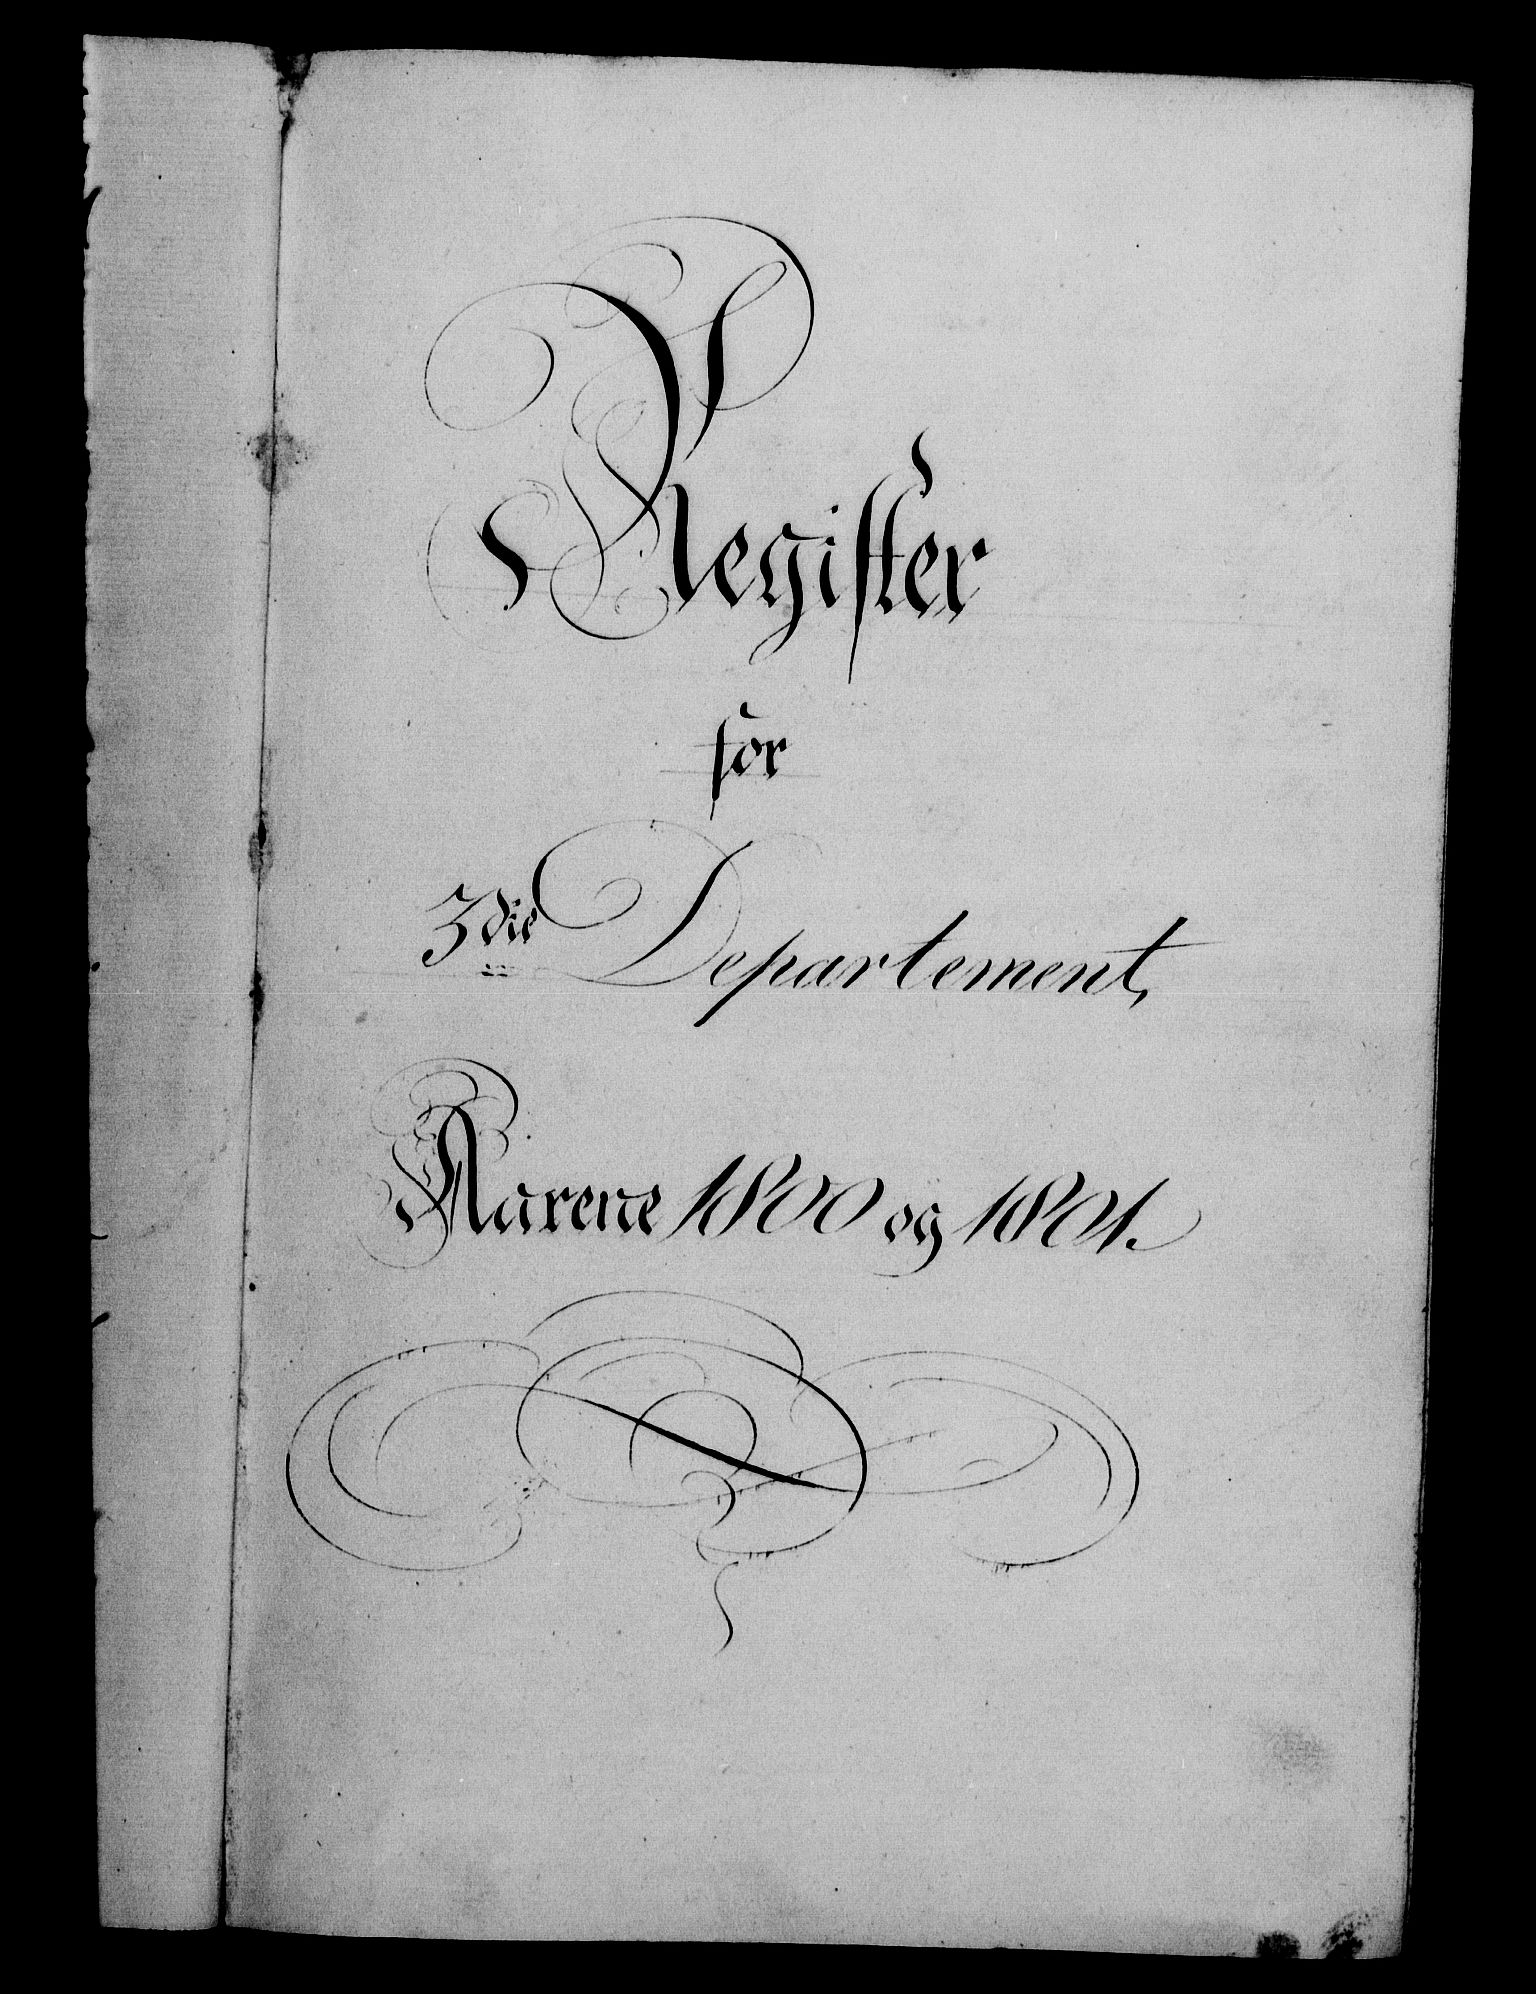 Register
for
3die Departement,
Aarene 1800 og 1801.